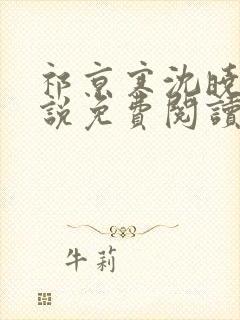 祁京寒沈曉
說免費閱讀
牛莉